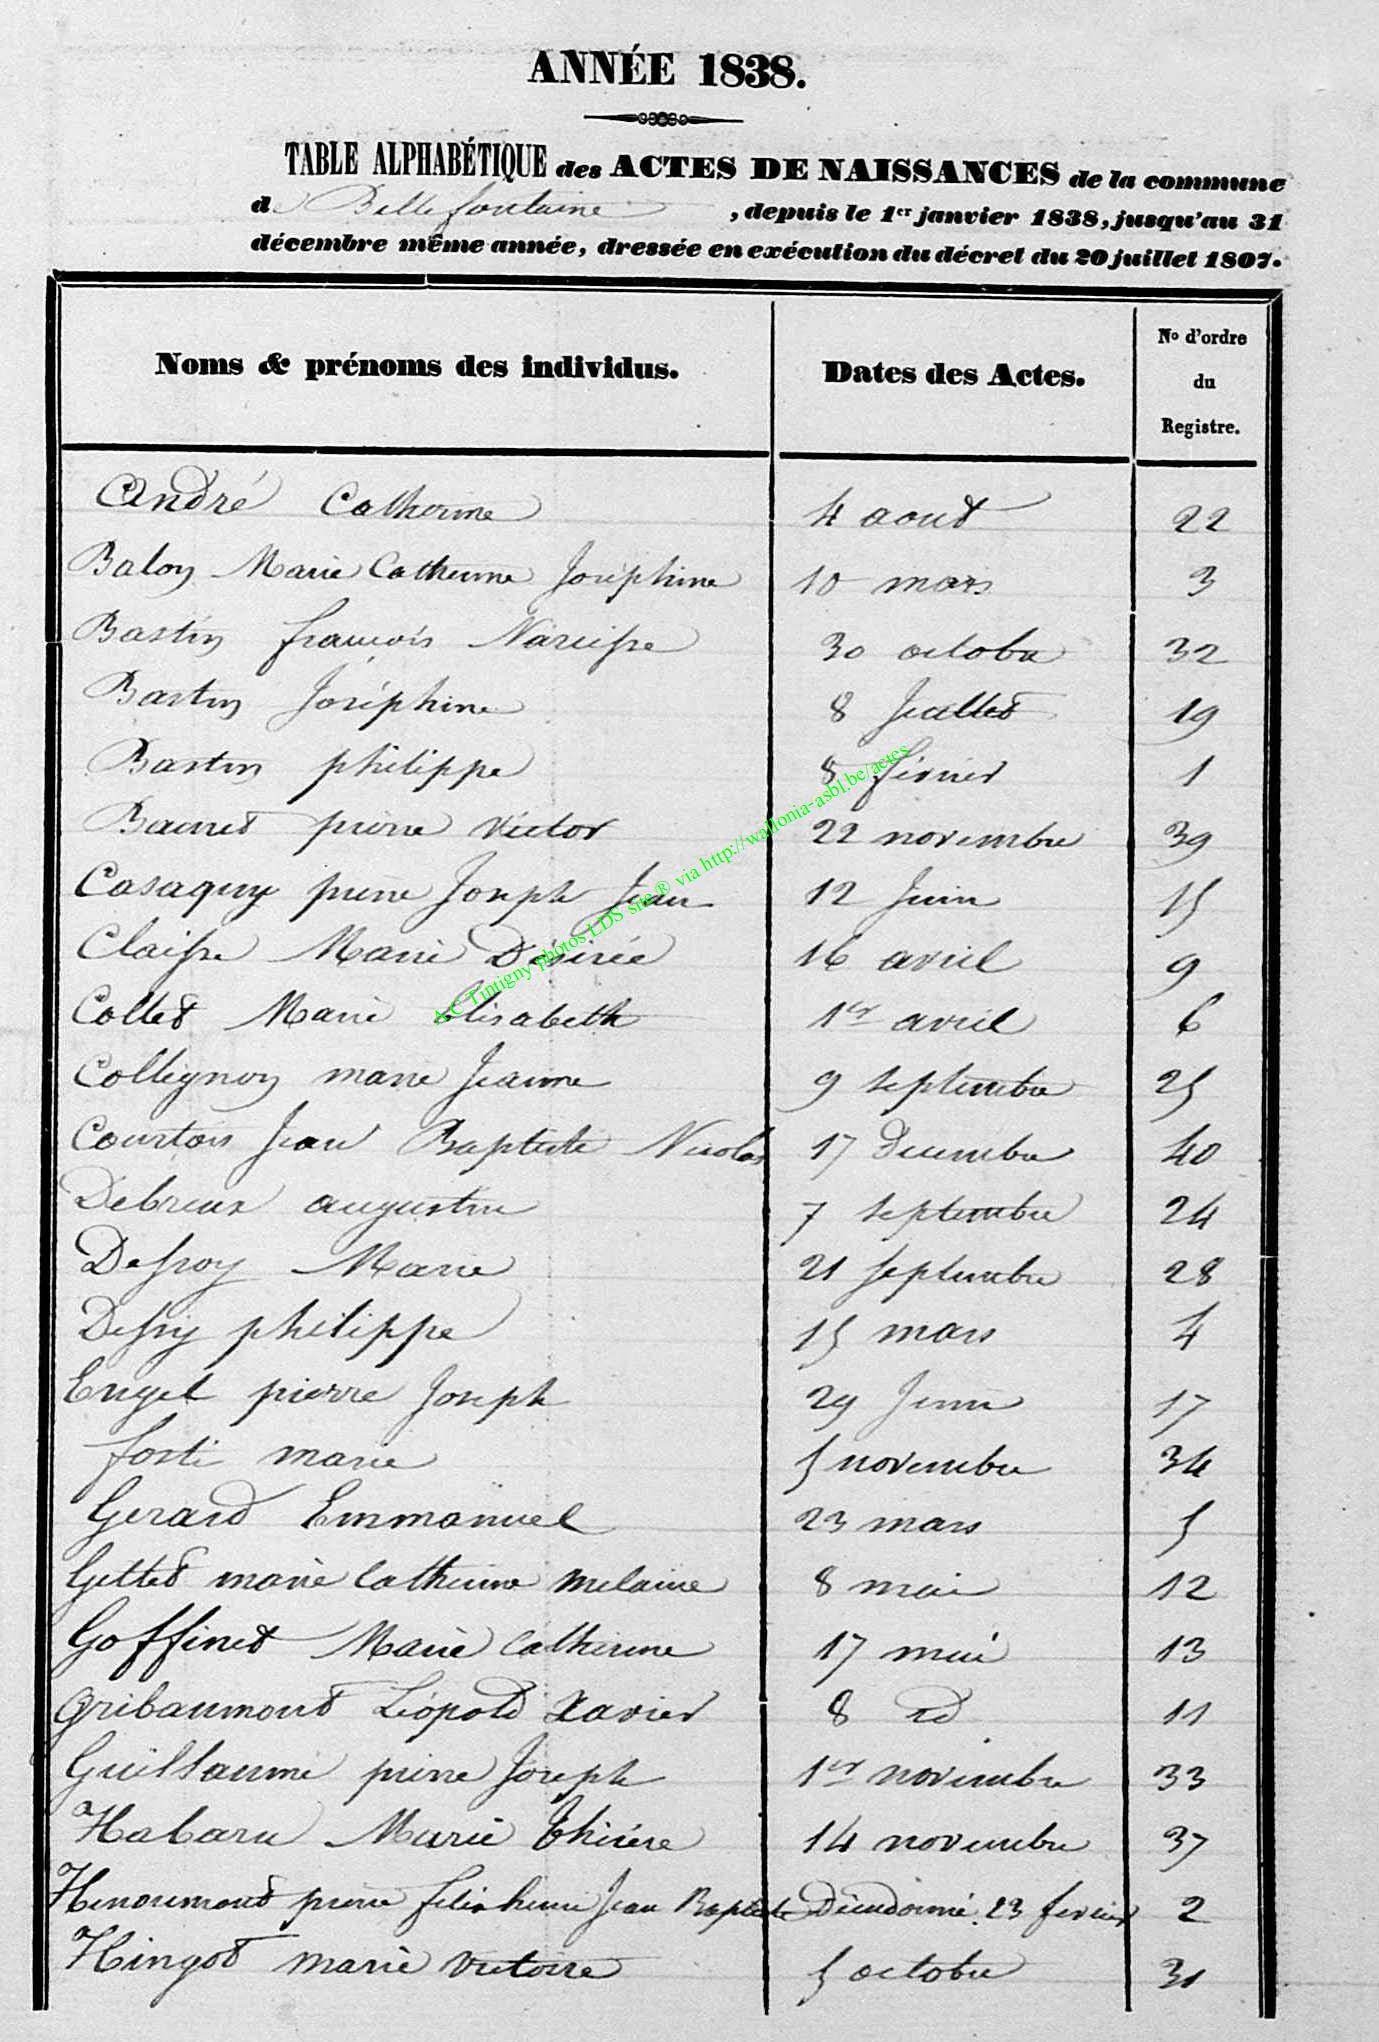 ANNÉE 1838.
TABLE ALPHABÉTIQUE des ACTES DE NAISSANCES de la commune
de Bellefontaine , depuis le 1er janvier 1838, jusqu'au 31
décembre même année, dressée en exécution du décret du 20 juillet 1807.
Noms & prénoms des individus. Dates des Actes. No d'ordre du Registre.
André Catherine 4 aout 22
Balon Marie Catherine Joséphine 10 mars 3
Bastin françois Narcisse 30 octobre 32
Bastin Joséphine 8 Juillet 19
Bastin philippe 8 février 1
Baunet pierre victor 22 novembre 39
Casaquy pierre Joseph Jean 12 Juin 15
Claisse Marie Désirée 16 avril 9
Collet Marie Elisabeth 1er avril 6
Collignon marie Jeanne 9 septembre 25
Courtois Jean Baptiste Nicolas 17 Decembre 40
Debreux augustin 7 septembre 24
Defroy Marie 21 septembre 28
Defroy philippe 15 mars 4
Engel pierre Joseph 29 Juin 17
fosti marie 5 novembre 34
Gerard Emmanuel 23 mars 5
Gillet marie Catherine melanie 8 mai 12
Goffinet Marie Catherine 17 mai 13
Gribaumont Léopold Xavier 8 id 11
Guillaume pierre Joseph 1er novembre 33
Habaru Marie thérèse 14 novembre 37
Henoumont pierre felix henri Jean Baptiste Dieudonné 23 fevrier 2
Hingot marie victoire 5 octobre 31
AC Tintigny photos LDS site® via http://wallonia-asbl.be/actes